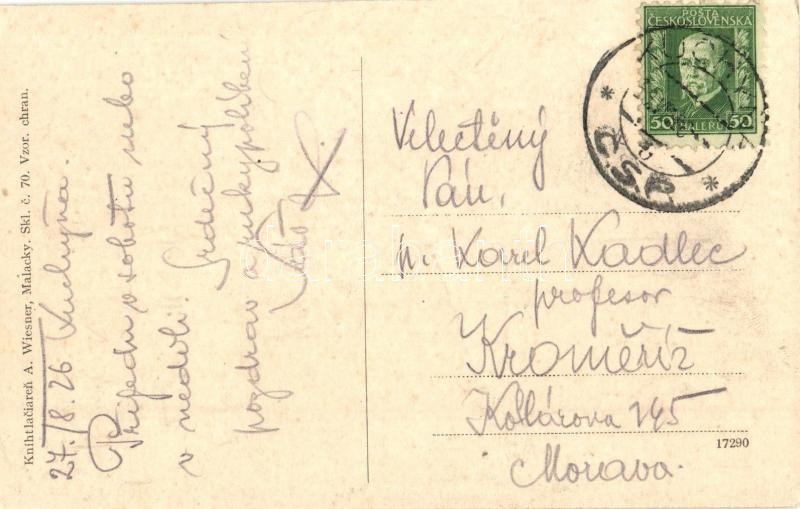 Knihtlačiareň A. Wiesner, Malacky. Skl. č. 70. Vzor. chran.
27./8.26 Kuchyňa.
Přijedu v sobotu nebo
v neděli. Srdečný
pozdrav a
POŠTA
ČESKOSLOVENSKÁ
50 HALÉŘŮ 50
* Č.S.P. *
Velectěný
Pán,
p. Karel Kadlec
profesor
Kroměříž
Kollárova 245
Morava.
17290
darabanth